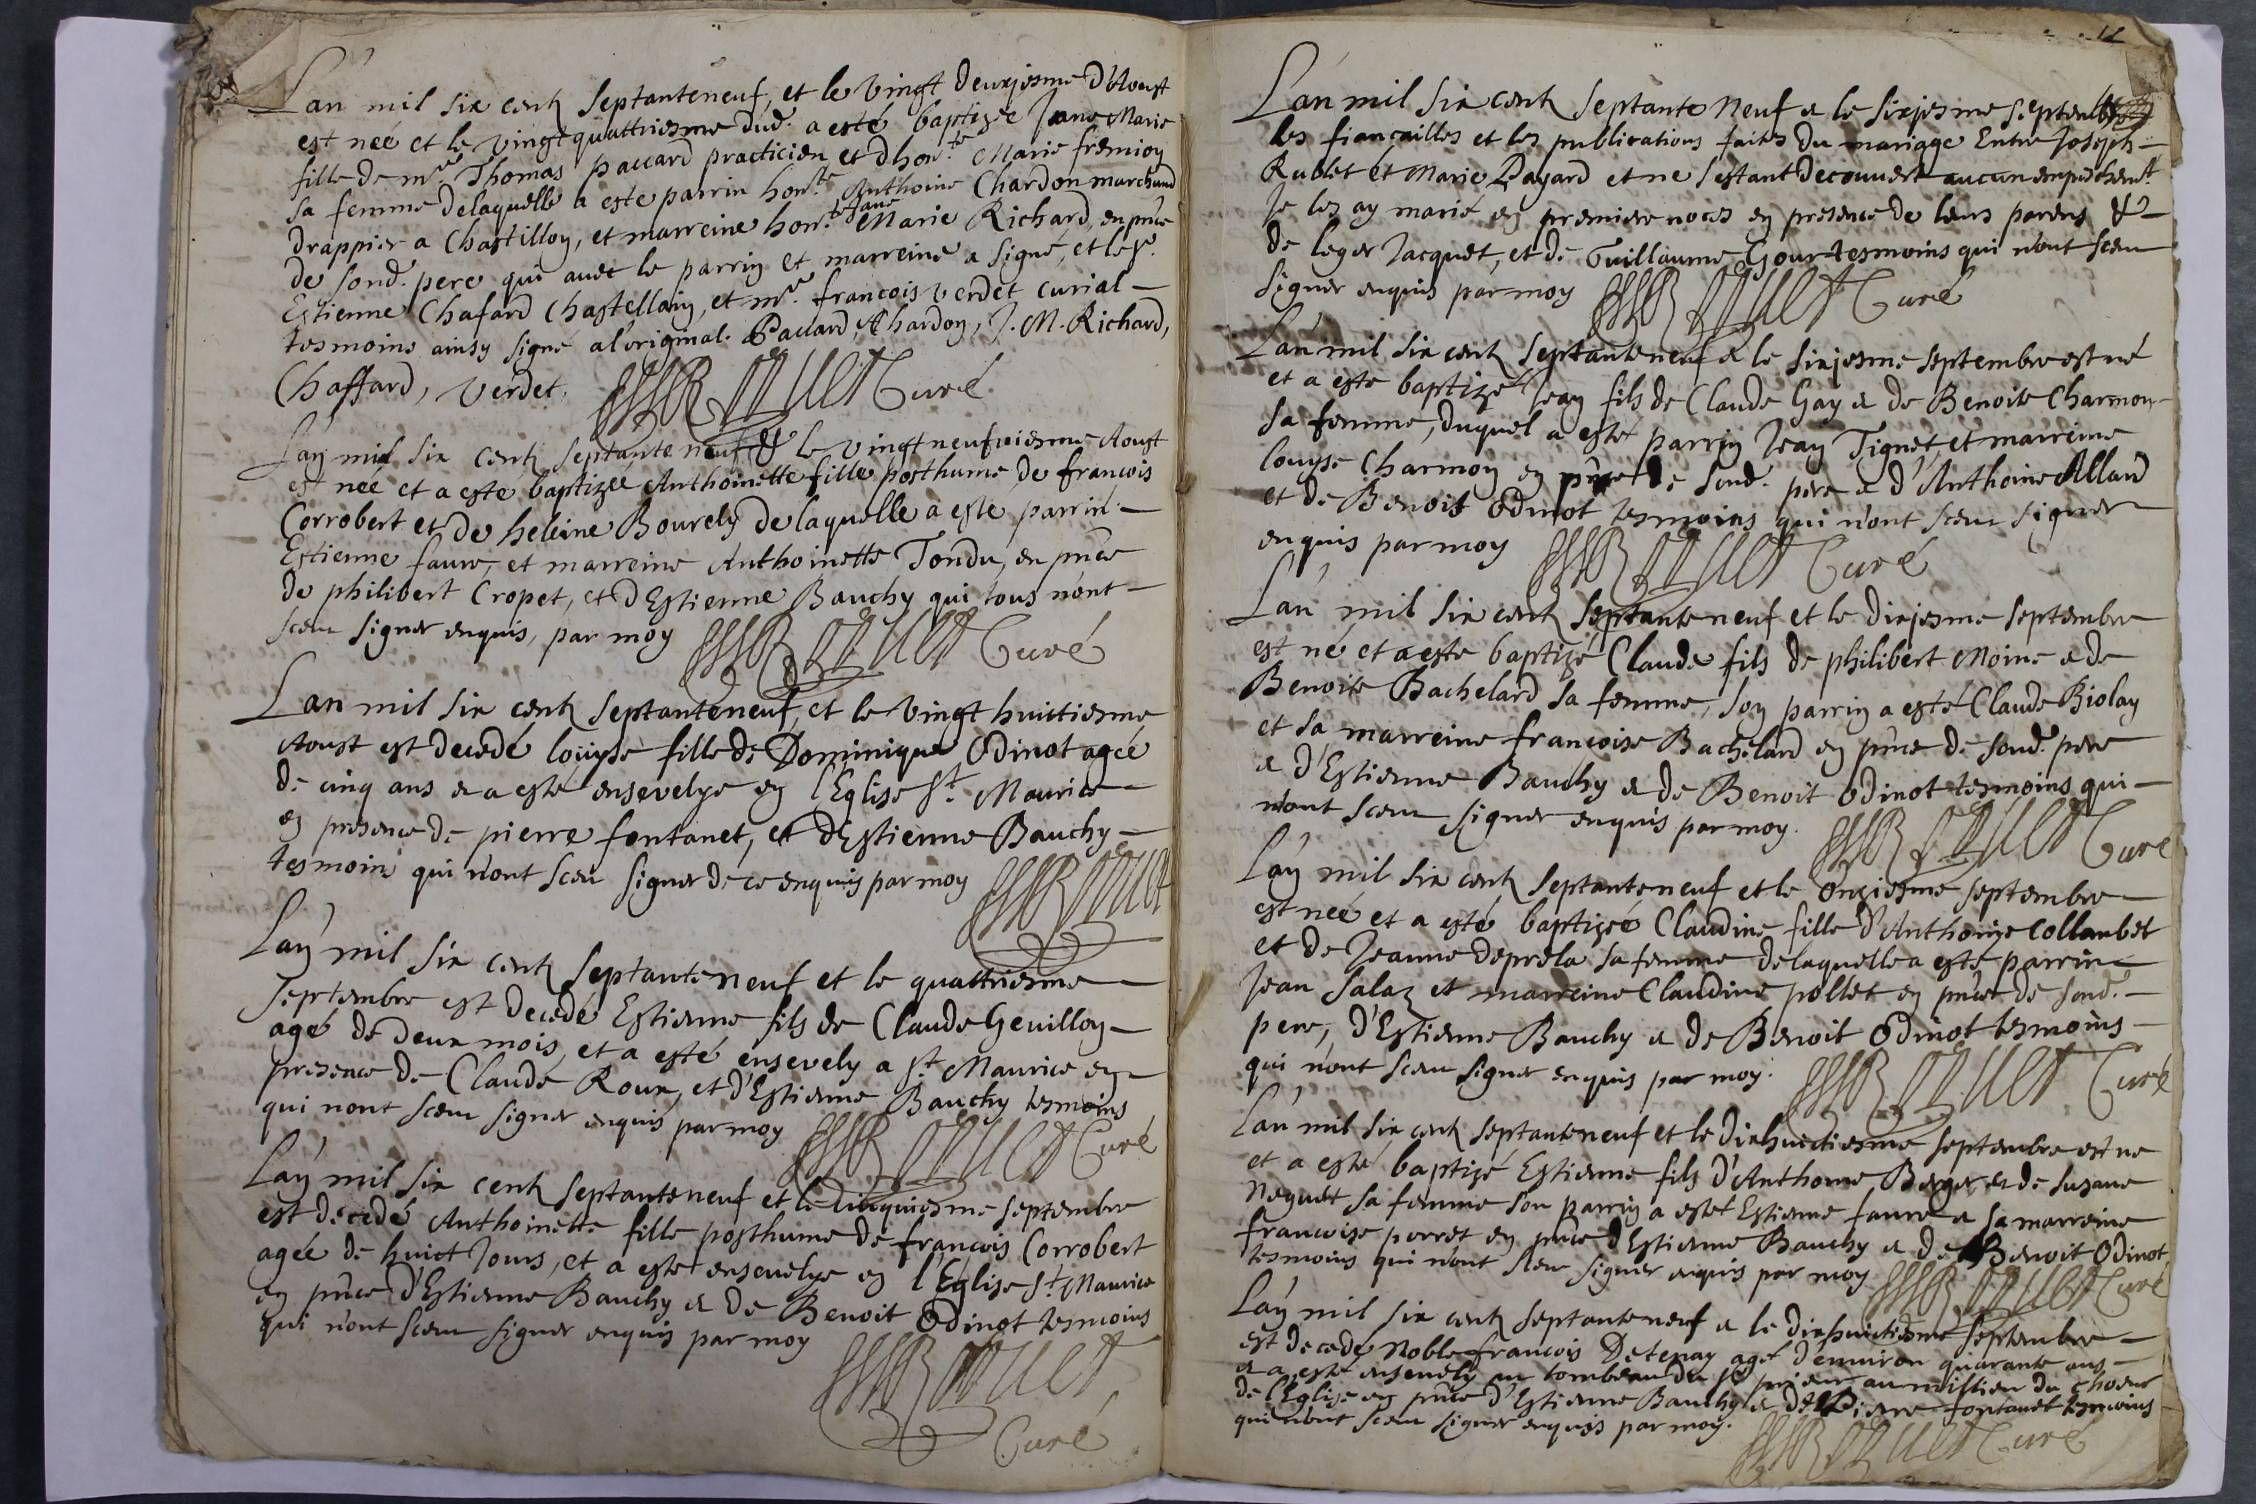 Lan mil six centz septanteneuf, et le vingt deuxjesme d'Aoust
est neé et le vingtquattriesme dud. a esté baptizée Jane Marie
fille de mre Thomas paccard practicien et dhon.te Marie fremioy
sa femme delaquelle a este parrin hon.te Anthoine Chardon marchand
drappier a Chastilloy, et marreine hon.te Jane Marie Richard, en pnce
de sond. pere qui avec le parriy et marreine a signé, et le sr.
Estienne Chafard Chastellaiy, et mre. francois verdet curial
tesmoins ainsy signé al'original. Paccard, A hardoy, J. M. Richard,
Chaffard, verdet. Curé
Lay mil six centz septanteneuf & le vingtneufviesme Aoust
est neé et a esté baptizeé Anthoinette fille posthume de francois
Corrobert et de heleine Bourely delaquelle a esté parrin
Estienne faure, et marreine Anthoinette Tondu, en pnce
de philibert Cropet, et d Estienne Bauchy qui tous n'ont
sceu signer enquis, par moy Curé
Lan mil six centz septanteneuf, et le vingt huittiesme
Aoust est decedé loüyse fille de Dominique Odinot ageé
de cinq ans & a esté ensevelye ey l'Eglise St. Maurice
ey presence de pierre fontanet, et dEstienne Bauchy
tesmoins qui n'ont sceu signer de ce enquis par moy
Lay mil six centz septanteneuf et le quattriesme
septembre est decedé Estienne fils de Claude Gevilloy
agé de deux mois, et a esté ensevely a St. Maurice ey
presence de Claude Roux, et d'Estienne Bauchy tesmoins
qui nont sceu signer enquis par moy Curé
Lay mil six centz septanteneuf et le cinquiesme septembre
est decedé Anthoinette fille posthume de francois Corrobert
ageé de huict Jours, et a esté ensevelye ey l'Eglise St. Maurice
ey pnce d'Estienne Bauchy & de Benoit Odinot tesmoins
qui n'ont sceu signer enquis par moy
Curé
12
Lan mil six centz septante neuf & le sixjesme septembre
les fiançailles et les publications faites du mariage Entre Joseph
Rublet et Marie Payard et ne s'estant decouvert aucun empeschemt.
Je les ay marié ey premiere noces ey presence de leurs parens &
de leger Jacquet, et de Guillaume Gour tesmoins qui n'ont sceu
signer enquis par moy Curé
Lan mil six centz septanteneuf & le sixjesme septembre est né
et a este baptizé Jeay fils de Claude Gay & de Benoite Charmoy
sa femme, duquel a esté parriy Jeay Tignet, et marreine
louyse Charmoy ey pnce de sond. pere & d'Anthoine Allard
et de Benoit Odinot tesmoins qui n'ont sceu signer
enquis par moy Curé
Lan mil six centz septanteneuf et le dixjesme septembre
est né et a este baptizé Claude fils de philibert Moine & de
Benoite Bachelard sa femme, soy parriy a esté Claude Biolay
et sa marreine francoise Bachelard ey pnce de sond. pere
& d'Estienne Bauchy & de Benoit Odinot tesmoins qui
n'ont sceu signer enquis par moy. Curé
Lay mil six centz septanteneuf et le Onziesme septembre
est neé et a esté baptizeé Claudine fille d'Anthoine Collanbet
et de Jeanne deprela sa femme delaquelle a esté parrin
Jean Salaz et marreine Claudine pollet ey pnce de sond.
pere, d'Estienne Bauchy & de Benoit Odinot tesmoins
qui n'ont sceu signer enquis par moy. Curé
Lan mil six centz septanteneuf et le dixhuictiesme septembre est ne
et a esté baptizé Estienne fils d'Anthoine Berger & de susane
Neguet sa femme son parriy a esté Estienne faure & sa marreine
francoise perret ey pnce d Estienne Bauchy & de Benoit Odinot
tesmoins qui n'ont sceu signer enquis par moy Curé
Lay mil six centz septanteneuf & le dixhuictiesme septembre
est decedé Noble francois Detenay agé d'environ quarante ans
& a esté ensevely au tombeau du sr prieur au millieu du choeur
de l'Eglise ey pnce d'Estienne Bauchy & de Pierre fontanet tesmoins
qui n'ont sceu signer enquis par moy. Curé